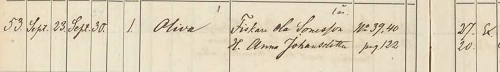 53. Sept. 23. Sept. 30. 1. Oliva Fiskar Ola Sonesson No 39.40 27.
H. Anna Johansdotter pag 122 20.